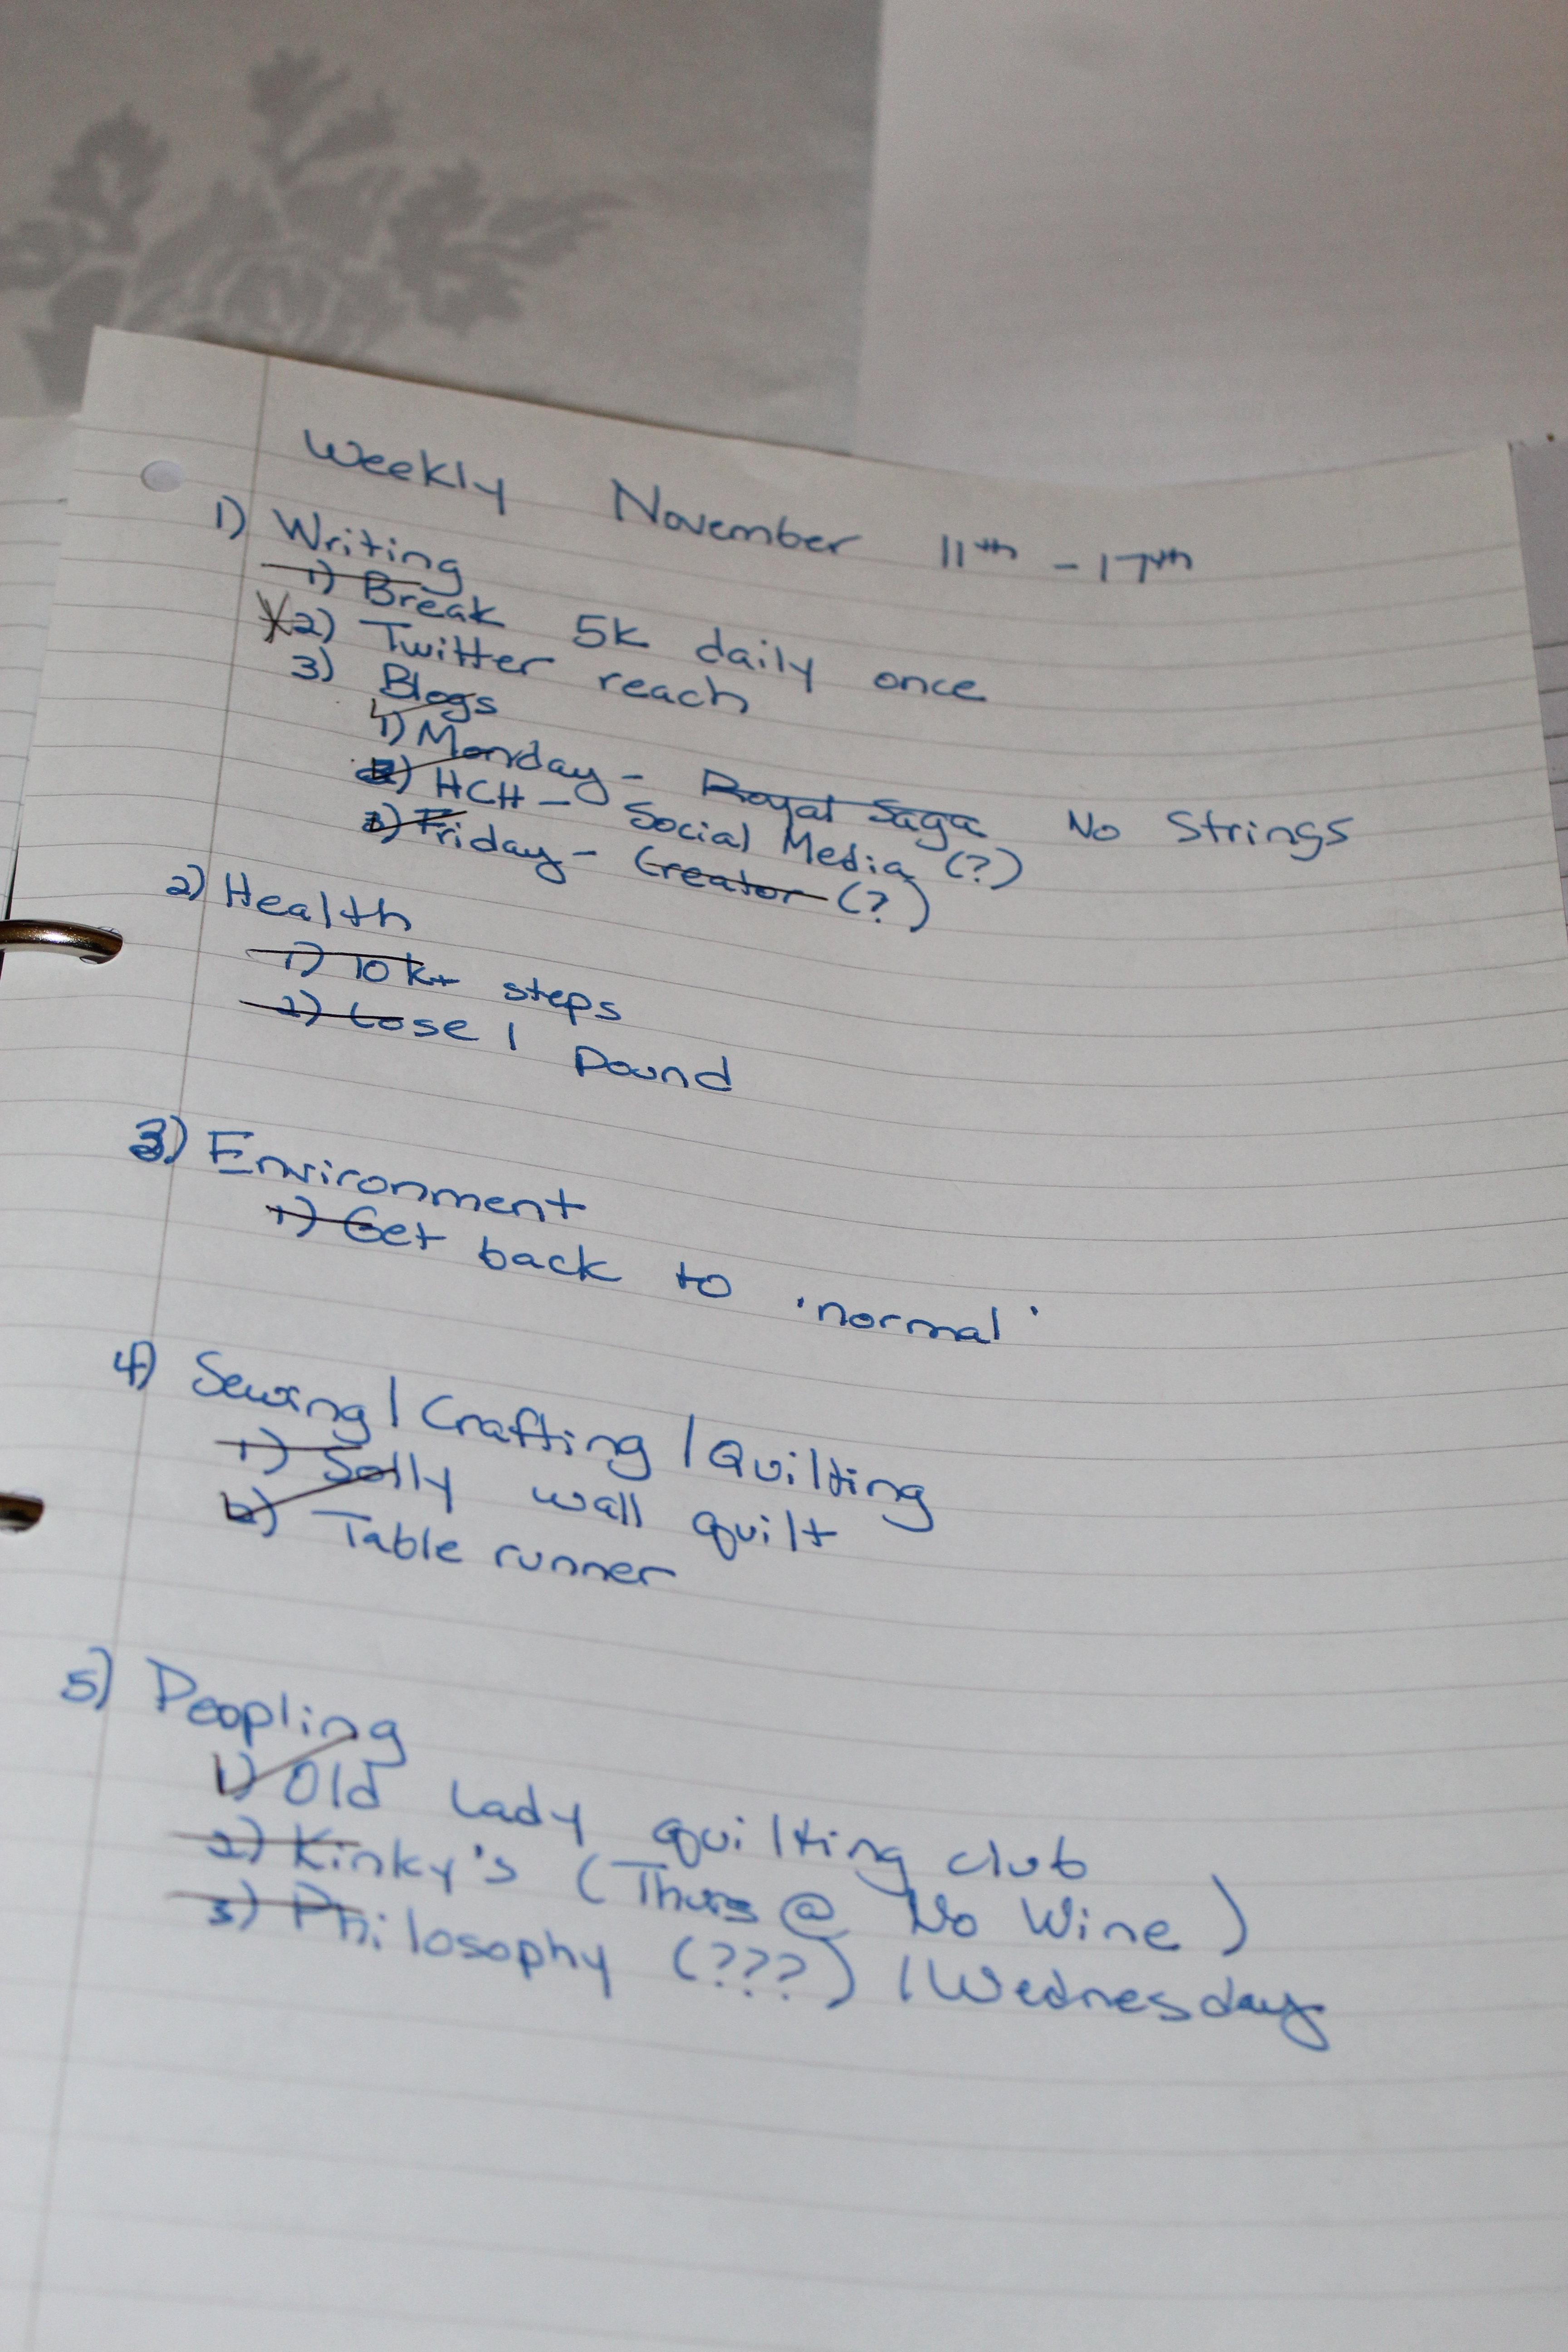 Weekly November 11th - 17th
1) Writing
1) Break 5k daily once
X2) Twitter reach
3) Blogs
1) Monday - Royal Saga No Strings
2) HCH - Social Media (?)
3) Friday - Creator (?)
2) Health
1) 10k+ steps
2) Lose 1 pound
3) Environment
1) Get back to 'normal'
4) Sewing / Crafting / Quilting
1) Solly wall quilt
2) Table runner
5) Peopling
1) Old Lady quilting club
2) Kinky's (Thurs @ No Wine)
3) Philosophy (???) / Wednesday